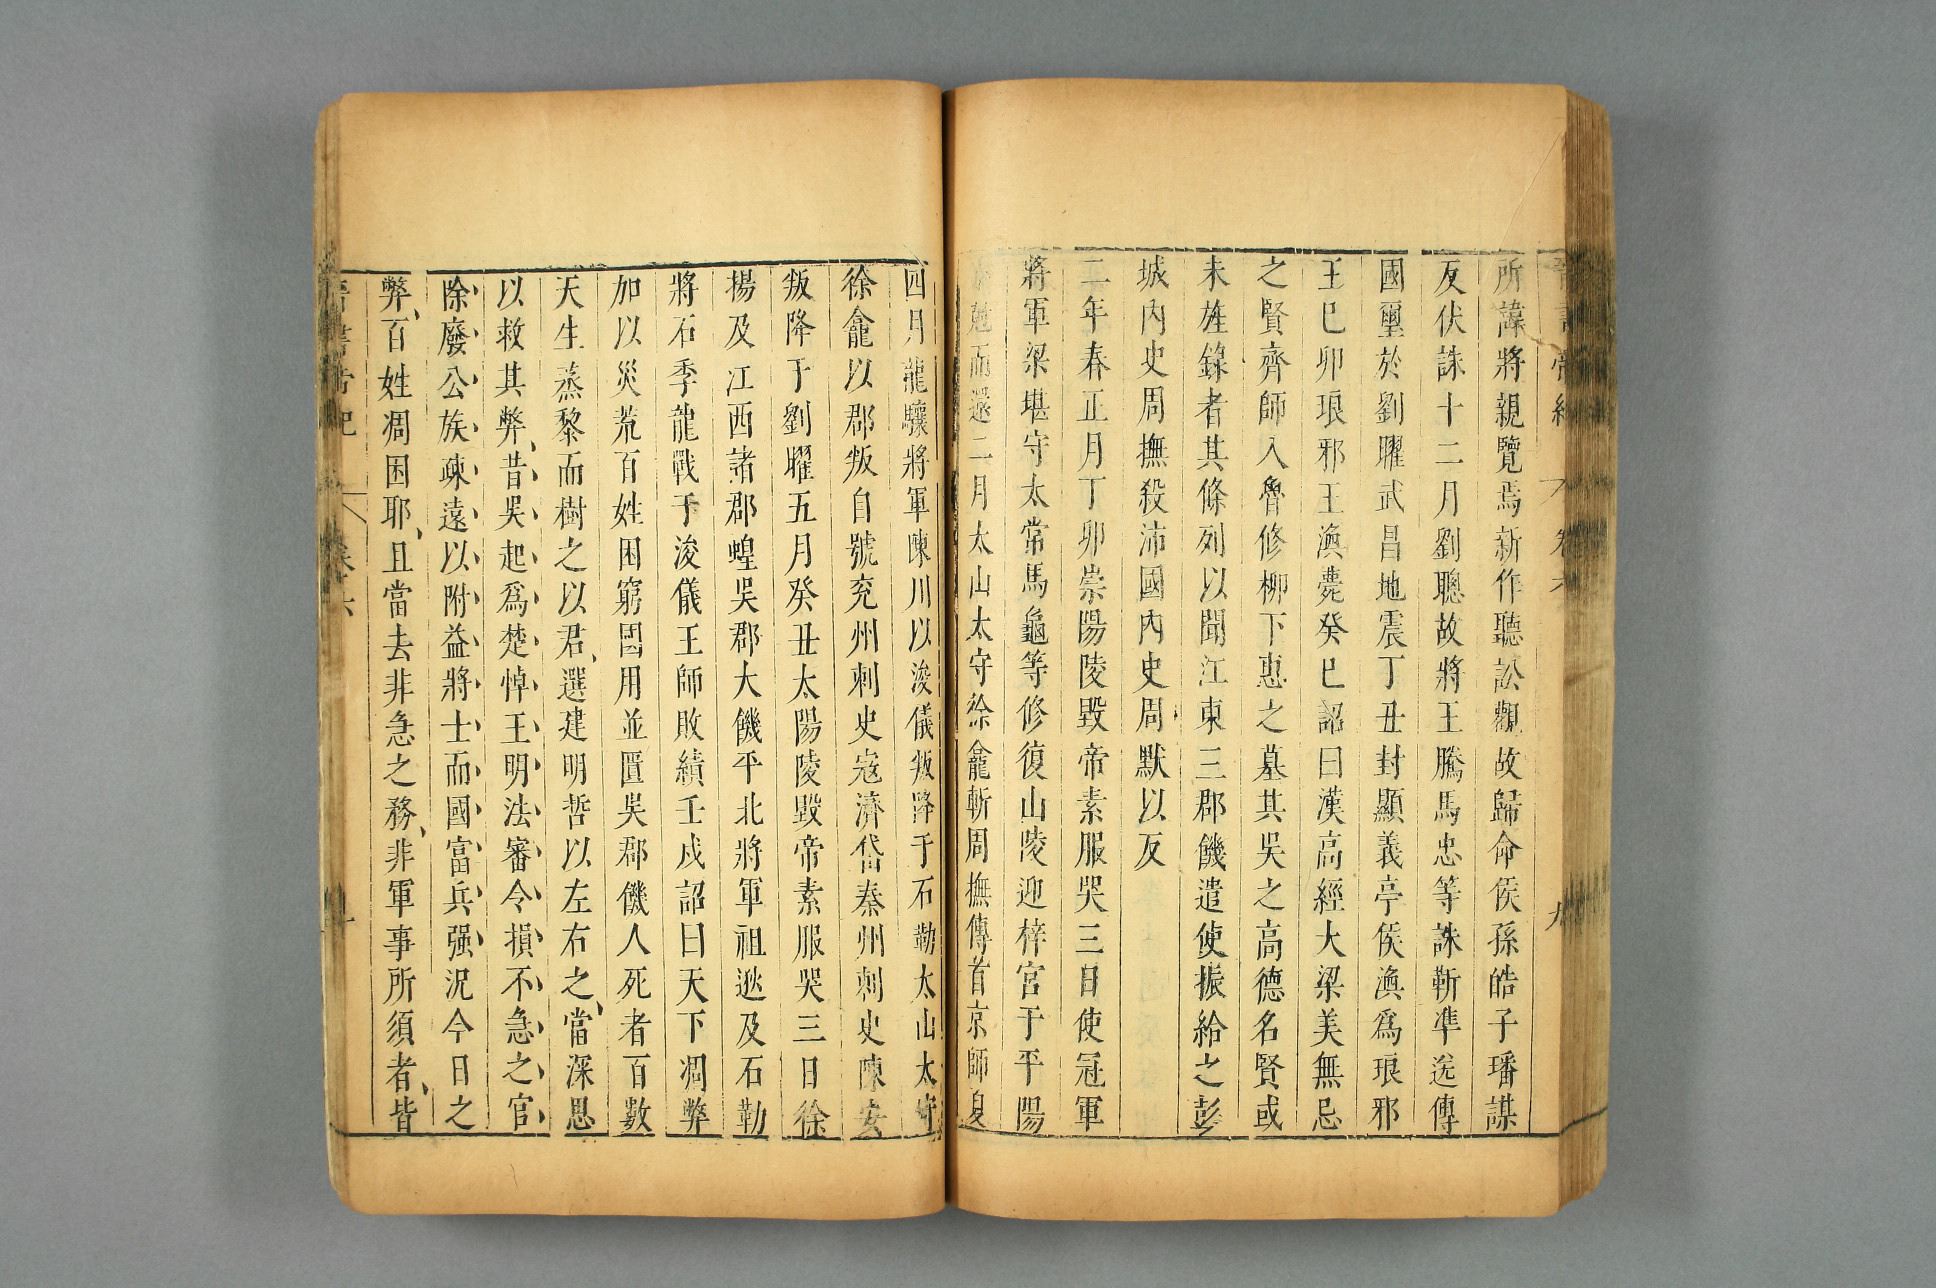 晉書帝紀 卷六 九
所諱將親覽焉新作聽訟觀故歸命侯孫皓子璠謀
反伏誅十二月劉聰故將王騰馬忠等誅靳準送傳
國璽於劉曜武昌地震丁丑封顯義亭侯渙爲琅邪
王已卯琅邪王渙薨癸巳詔曰漢高經大梁美無忌
之賢齊師入魯修柳下惠之墓其吳之高德名賢或
未旌錄者其條列以聞江東三郡饑遣使振給之彭
城內史周撫殺沛國內史周默以反
二年春正月丁卯崇陽陵毀帝素服哭三日使冠軍
將軍梁堪守太常馬龜等修復山陵迎梓宮于平陽
尅而還二月太山太守徐龕斬周撫傳首京師夏
四月龍驤將軍陳川以浚儀叛降于石勒太山太守
徐龕以郡叛自號兗州刺史寇濟岱秦州刺史陳安
叛降于劉曜五月癸丑太陽陵毀帝素服哭三日徐
揚及江西諸郡蝗吳郡大饑平北將軍祖逖及石勒
將石季龍戰于浚儀王師敗績壬戌詔曰天下凋弊
加以災荒百姓困窮國用並匱吳郡饑人死者百數
天生蒸黎而樹之以君、選建明哲以左右之、當深思
以救其弊、昔吳起爲楚悼王明法審令損不急之官
除廢公族疎遠以附益將士而國富兵强況今日之
弊、百姓凋困耶、且當去非急之務、非軍事所須者、皆
晉書帝紀 卷六 十